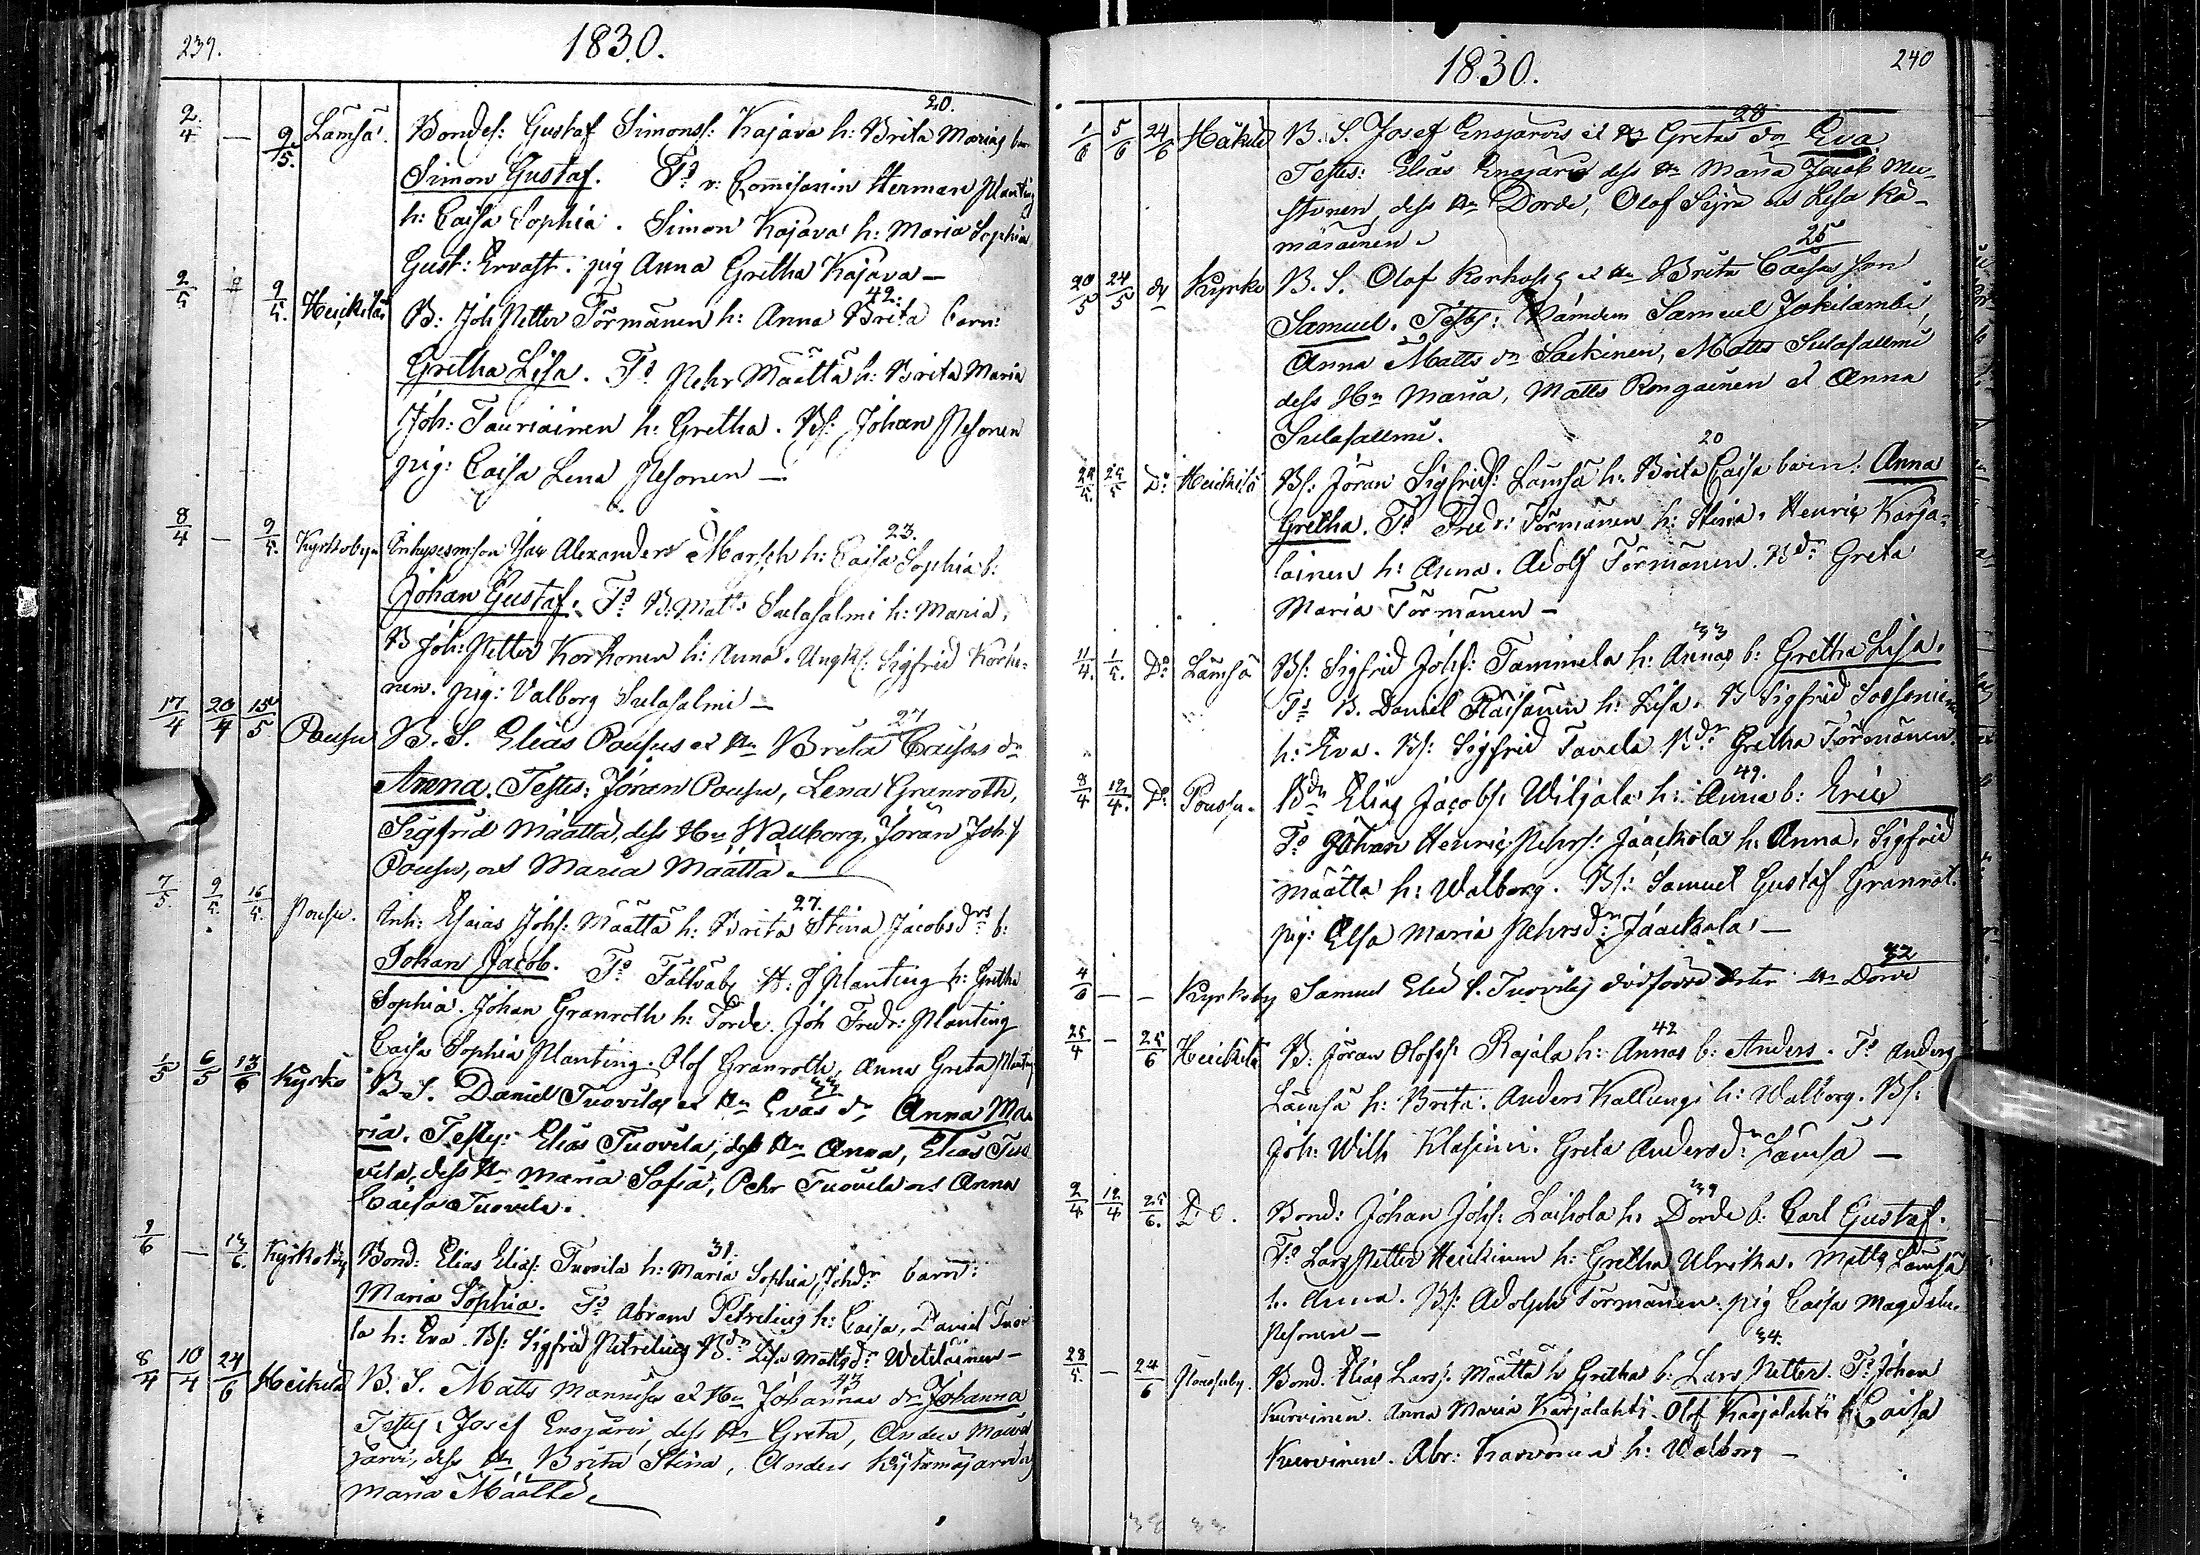 239.
1830.
2/4 — 9/5. Lämsä. Bondes: Gustaf Simonss: Kajava h: Brita Marias barn 20.
Simon Gustaf. Ts v: Commissarien Herman Planting
h: Caisa Sophia. Simon Kajava h: Maria Sophia
Gust: Ervast. pig Anna Gretha Kajava —
2/5 9/5. Heickilä B: Joh Petter Törmänen h: Anna Brita barn: 42.
Gretha Lisa. Ts Pehr Määttä h: Brita Maria
Joh: Tauriainen h: Gretha. Bs: Johan Pesonen
pig: Caisa Lena Pesonen —
8/4 — 9/5. Kyrkobyn Alexanders h: Caisa Sophia b: 23.
Johan Gustaf. Ts B: Matts Sulasalmi h: Maria.
B Joh: Petter Korhonen h: Anna. Ungk: Sigfrid Korho-
nen. pig: Valborg Sulasalmi —
17/4 20/4 15/5 Pousu B. S. Elias Pousus et Hu Brita Caisas dr 27
Anna. Testes: Jöran Pousu, Lena Granroth,
Sigfrid Määttä, dess Hu Wallborg, Jöran Johs
Pousu, och Maria Määttä.
7/5 9/5. 16/5. Pousu. Inh: Esaias Johs: Määttä h: Brita Stina Jacobsdrs b: 27.
Johan Jacob. Ts Fältväb. H. J Planting h: Gretha
Sophia. Johan Granroth h: Dorde. Joh Fredr: Planting
Caisa Sophia Planting. Olof Granroth, Anna Greta Planting
1/5 6/5 13/6 Kyrko B. S. Daniel Tuovilas et Hu Evas dr Anna Ma- 33
ria. Testes: Elias Tuovila, dess Hu Anna, Elias Tuo
vila, dess Hu Maria Sofia, Pehr Tuovila och Anna
Caisa Tuovila.
9/6 — 13/6. Kyrkoby Bond: Elias Elias: Tuovila h: Maria Sophia Johdr barn: 31.
Maria Sophia. Ts Abram Petrelius h: Caisa, Daniel Tuovi
la h: Eva. Bs: Sigfrid Petrelius Bdr Lisa Mattsdr Wetelainen —
8/4 10/4 24/6 Heikilä B. S. Matts et Hu Johannas dr Johanna 43
Testes: Josef Enojärvi, dess Hu Greta, Anders
järvi, dess Hu Brita Stina, Anders
Maria Määttä.
240
1830.
1/6 5/6 24/6 Häkilä B. S. Josef Enojärvis et Hu Gretas dr Eva 28
Testes: Elias Enojärvi dess Hu Maria Jacob Mu-
stonen dess Hu Dorde, Olof och Lisa Kä-
märäinen.
20/5 24/5 Kyrko B. S. Olof Korhos et Hu Brita Caisas son 25
Samuel. Testes: Nämdem Samuel Jokilambi,
Anna Matts dr Säckinen, Matts Sulasalmi
dess Hu Maria, Matts Rongainen et Anna
Sulasalmi.
24/5 25/5 Do Heickilä Bs: Jöran Sigfrids: Lämsä h: Brita Caisa barn: Anna 20
Gretha. Ts Fredr: Törmänen h: Stina. Henric Karja-
lainen h: Anna. Adolf Törmänen. Bdr Greta
Maria Törmänen —
11/4. 1/5. Do Lämsä Bs: Sigfrid Johs: Tammela h: Annas b: Gretha Lisa. 33
Ts B. Daniel Räisänen h: Lisa. B Sigfrid
h: Eva. Bs: Sigfrid Tavela Bdr Gretha Törmänen.
8/4 12/4. Do Pousu. Bdn Elias Jacobs: Wiljala h: Anna b: Eric 49.
Ts Johan Henric Pehrs: Jääckola h: Anna. Sigfrid
Määttä h: Walborg. Bs: Samuel Gustaf Granrot.
pig: Elsa Maria Pehrsdr Jääckola —
4/6 — — Kyrkoby Samuel Elias s. Tuovilas dödfödd dotter Hu Dorde 32
25/4 — 25/6 Heickilä B: Jöran Olofss: Rajala h: Annas b: Anders. Ts Anders 42
Lämsä h: Brita. Anders Kallungi h: Walborg. Bs:
Joh: Wilh Klasiini. Greta Andersdr Lämsä —
2/4 12/4 25/6. Do. Bond: Johan Johs: Laihola h: Dorde b: Carl Gustaf. 39
Ts Lars Petter Heickinen h: Gretha Ulrika. Matts Lämsä
h. Anna. Bs: Adolph Törmänen. pig Caisa Magdale.
Pesonen —
28/5. — 24/6 Pousuby. Bond. Elias Larss: Määttä h Grethas b: Lars Petter. Ts Johan 34.
Kurvinen. Anna Maria Karjalahti. Olof Karjalahti h: Caisa
Kurvinen. Abr: Karvonen h: Walborg —